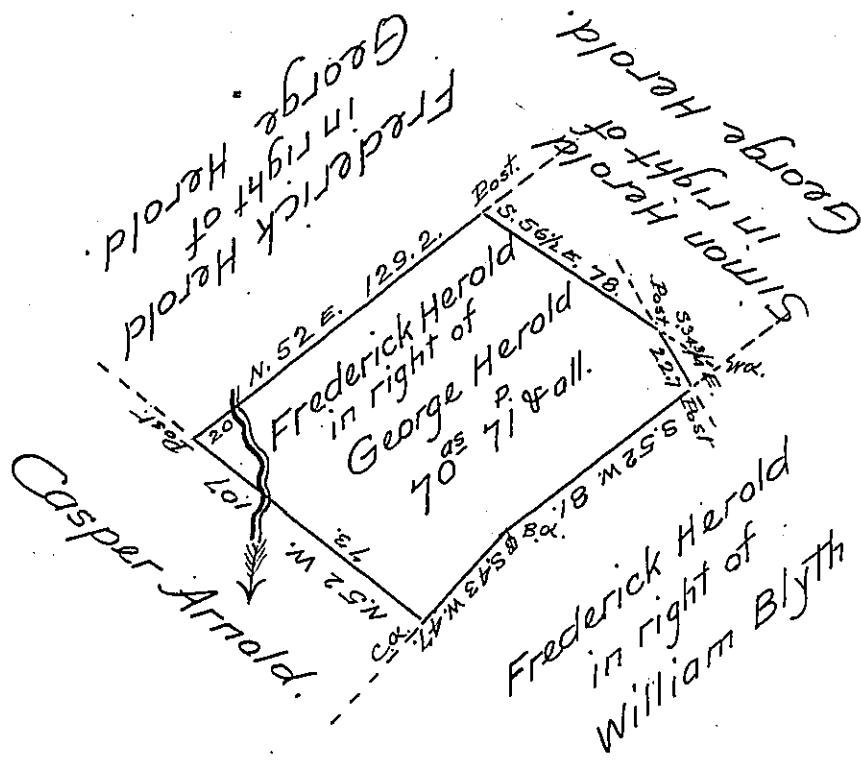 Frederick Herold
in right of
George Herold.
Simon Herold
in right of
George Herold.
Post.
N. 52 E. 129.2.
S. 56½ E. 78.
Post.
S. 34¾ E.
22.7
Post
Frederick Herold
in right of
George Herold
70 as 71 P. & all.
Post
20
107
N. 52 W. 73.
S. 52 W. 81
S. 43 W. 47.
Casper Arnold.
Frederick Herold
in right of
William Blyth